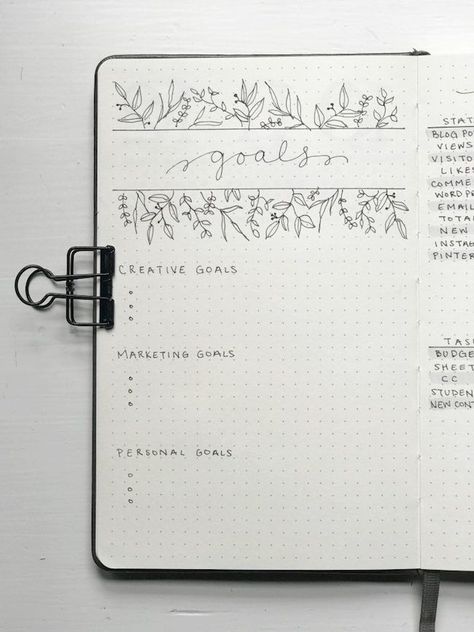 goals
CREATIVE GOALS
MARKETING GOALS
PERSONAL GOALS
STAT
BLOG PO
VIEWS
VISITO
LIKES
COMME
WORDPR
EMAIL
TOTA
NEW
INSTAG
PINTER
TAS
BUDGE
SHEET
CC
STUDEN
NEW CONT